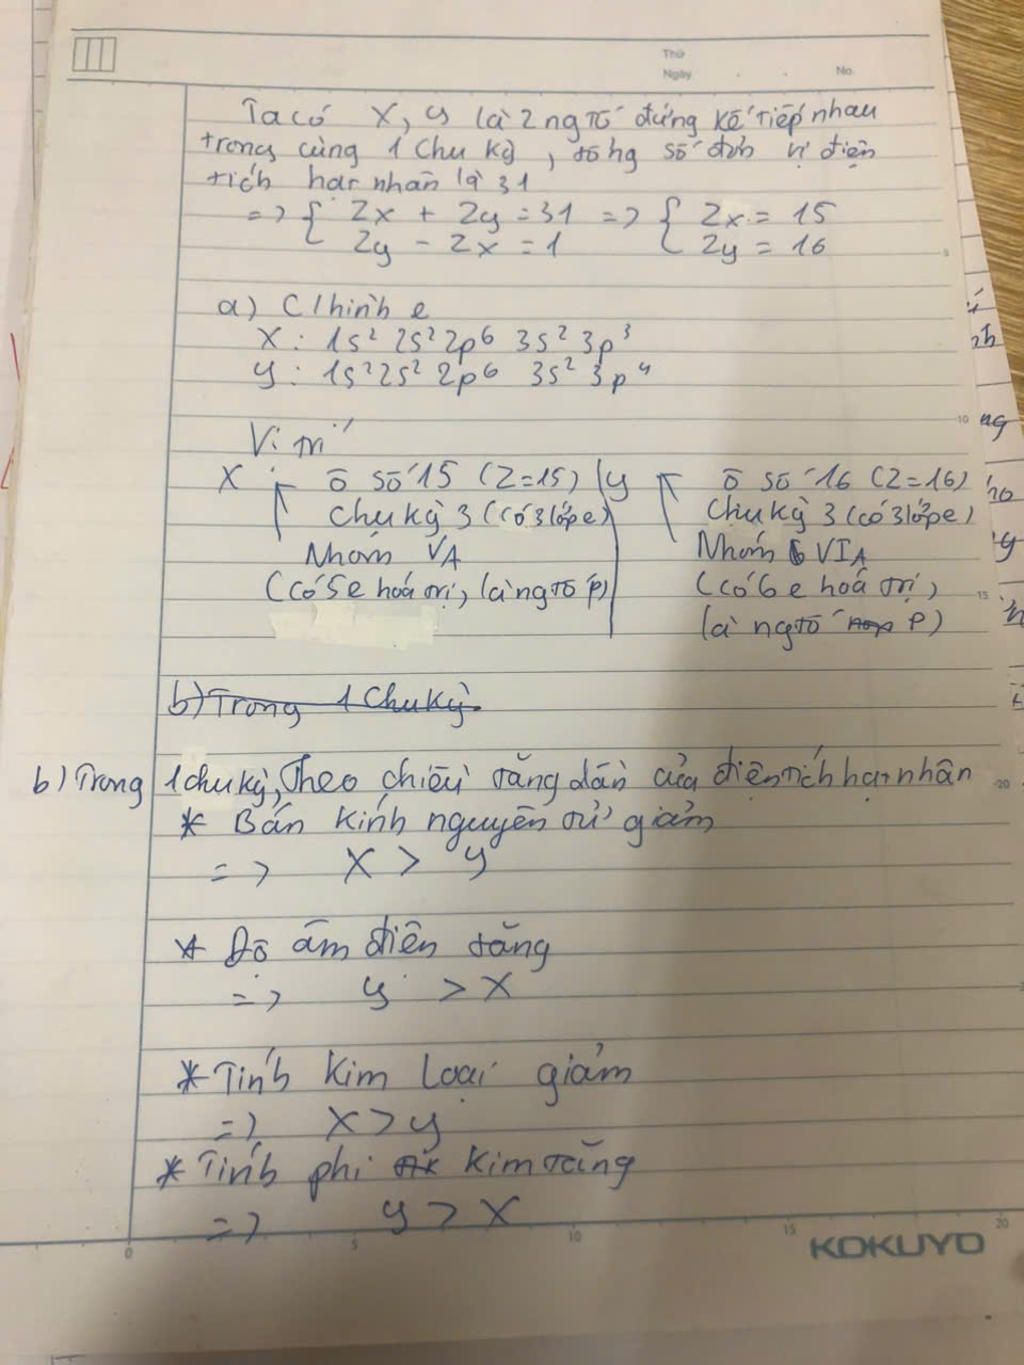 Thứ
Ngày
No.
Ta có X, y là 2 ngtố đứng kế tiếp nhau
trong cùng 1 Chu kỳ, tổng số đơn vị điện
tích hạt nhân là 31
=> { Zx + Zy = 31 => { Zx = 15
Zy - Zx = 1 Zy = 16
a) C/hình e
X : 1s² 2s² 2p⁶ 3s² 3p³
y : 1s² 2s² 2p⁶ 3s² 3p⁴
Vị trí
X : ô số 15 (Z=15) | y ô số 16 (Z=16)
chu kỳ 3 (có 3 lớp e) Chu kỳ 3 (có 3 lớp e)
Nhóm VA Nhóm VIA
(có 5e hoá trị, là ngtố p) (có 6 e hoá trị,
là ngtố p)
b) Trong 1 Chu kỳ
b) Trong 1 chu kỳ, Theo chiều tăng dần của điện tích hạt nhân
* Bán kính nguyên tử giảm
=> X > y
* Độ âm điện tăng
=> y > X
* Tính Kim Loại giảm
=> X > y
* Tính phi kim tăng
=> y > X
0 5 10 15 20
KOKUYO